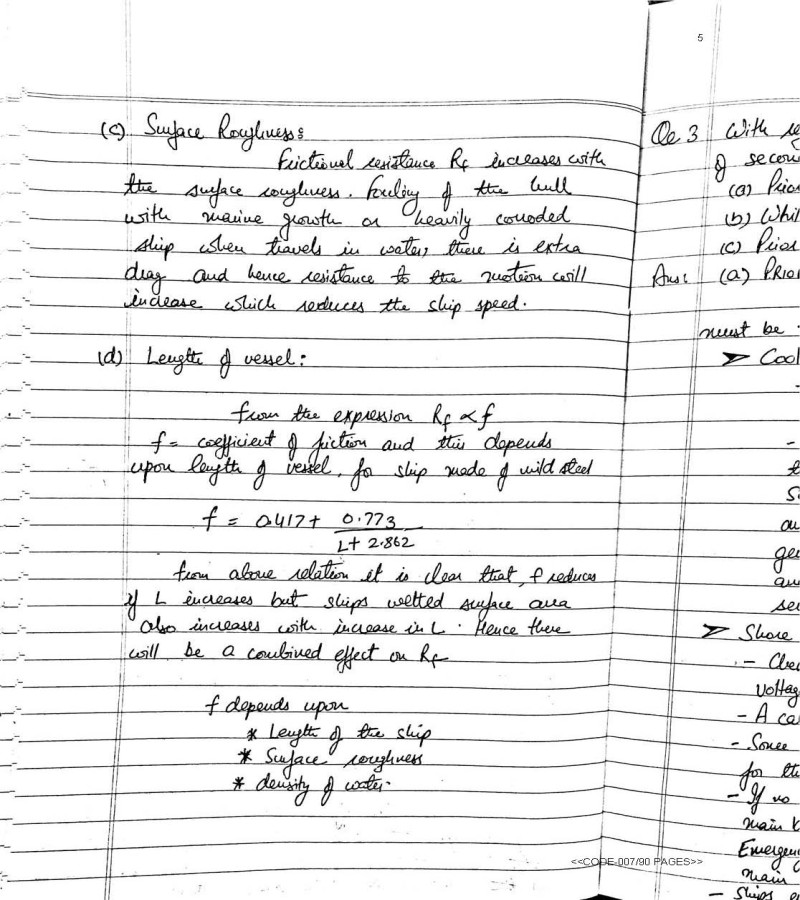 5
(c) Surface Roughness:
Frictional resistance Rf increases with
the surface roughness. Fouling of the hull
with marine growth or heavily corroded
ship when travels in water, there is extra
drag and hence resistance to the motion will
increase which reduces the ship speed.
(d) Length of vessel:
from the expression Rf ∝ f
f = coefficient of friction and this depends
upon length of vessel, for ship made of mild steel
f = 0.417 + 0.773
L + 2.862
from above relation it is clear that, f reduces
if L increases but ships wetted surface area
also increases with increase in L. Hence there
will be a combined effect on Rf
f depends upon
* Length of the ship
* Surface roughness
* density of water.
Qe. 3 With
of
(a)
(b)
(c)
Ans: (a)
must be
➤
-
-
➤ Shore
-
- A
-
for
- If no
main
main
- Ships
<<CODE-007/90 PAGES>>